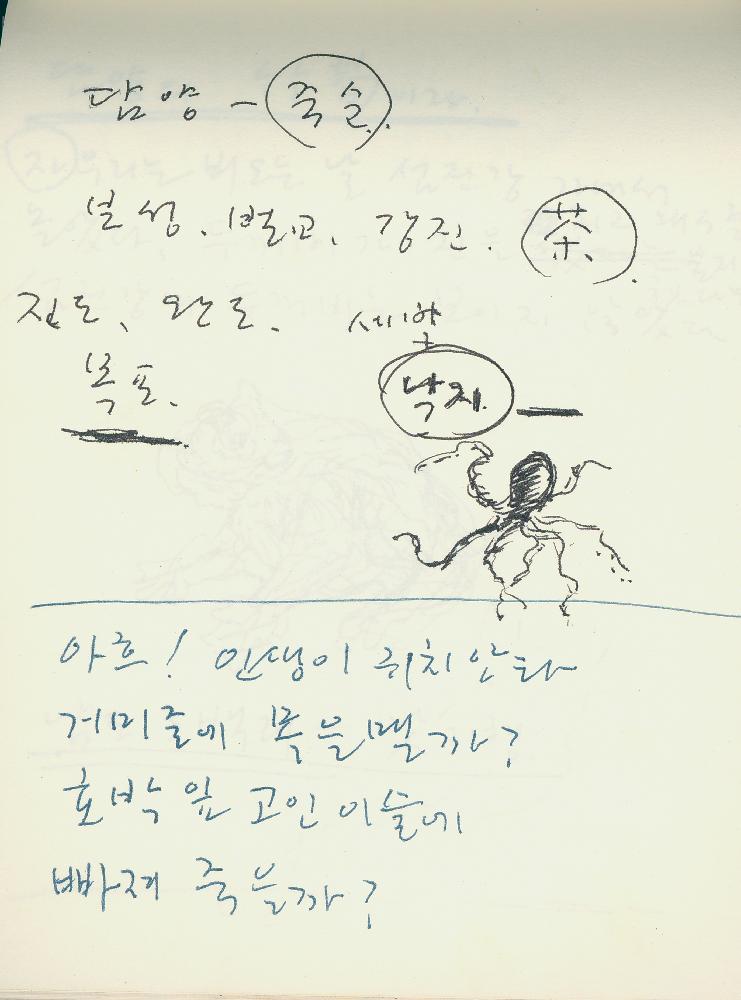 담양 - 죽실..
보성. 벌교. 강진. 茶.
진도. 완도. 세발
목포. 낙지.
아흐! 인생이 귀치 안타
거미줄에 목을 맬까?
호박 잎 고인 이슬에
빠져 죽을까?